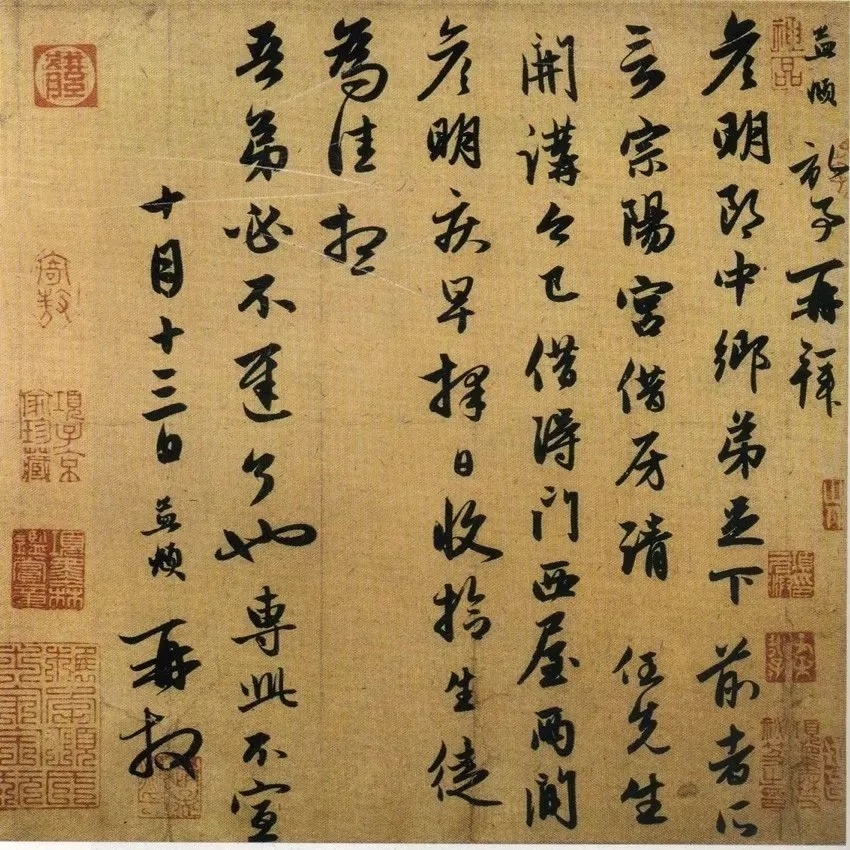 神品
孟頫頓首再拜
彦明郎中鄉弟足下前者所
言宗陽宮借房請 任先生
開講今已借得門西屋兩間
彦明疾早擇日收拾生徒
為佳想
吾弟必不遲了也專此不宣
十月十三日孟頫再拜
項子京
家珍藏